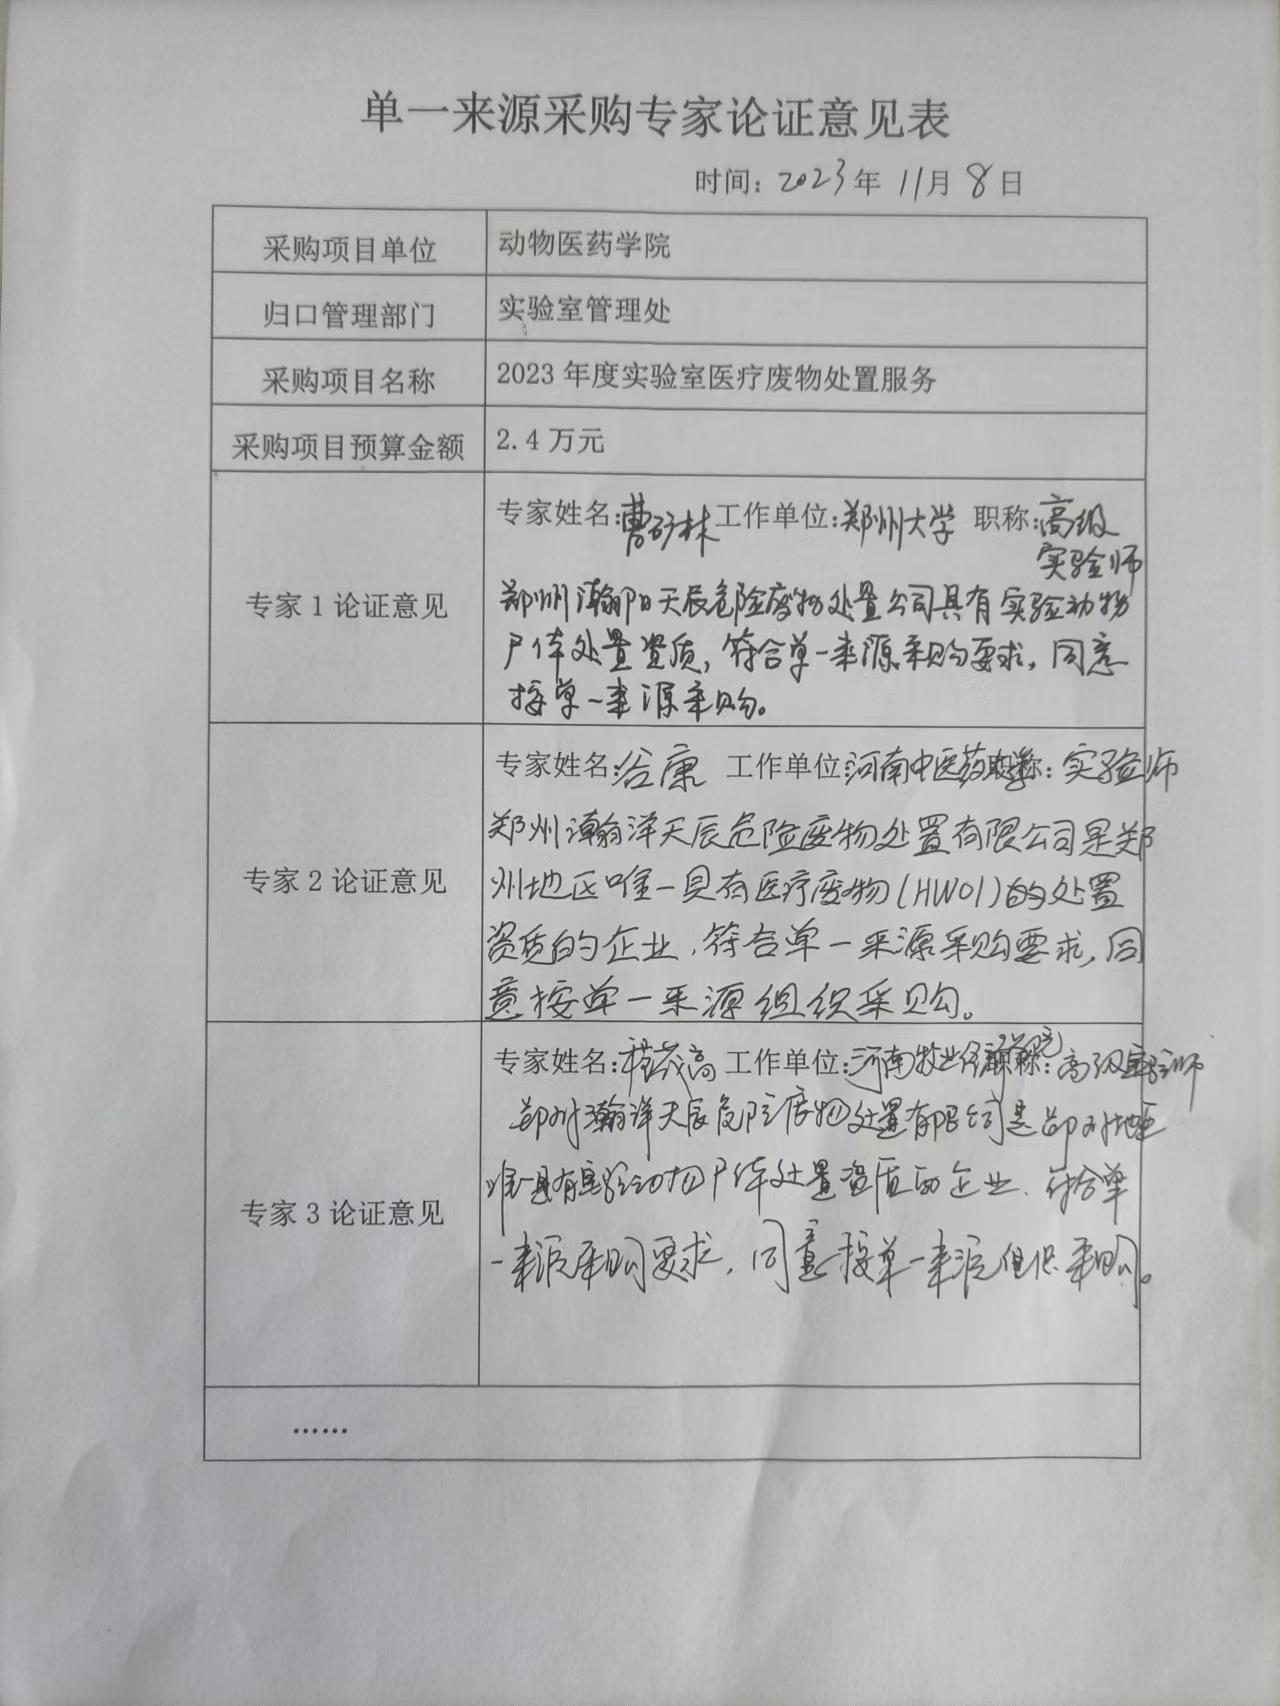 单一来源采购专家论证意见表
时间：2023年11月8日
采购项目单位 动物医药学院
归口管理部门 实验室管理处
采购项目名称 2023 年度实验室医疗废物处置服务
采购项目预算金额 2.4 万元
专家 1 论证意见
专家姓名：曹矿林 工作单位：郑州大学 职称：高级
实验师
郑州瀚阳天辰危险废物处置公司具有实验动物
尸体处置资质，符合单一来源采购要求，同意
按单一来源采购。
专家 2 论证意见
专家姓名：谷康 工作单位：河南中医药大学 职称：实验师
郑州瀚洋天辰危险废物处置有限公司是郑
州地区唯一具有医疗废物(HW01)的处置
资质的企业，符合单一来源采购要求，同
意按单一来源组织采购。
专家 3 论证意见
专家姓名：茂高 工作单位：河南牧业经济学院 职称：高级实验师
郑州瀚洋天辰危险废物处置有限公司是郑州地区
唯一具有实验动物尸体处置资质的企业，符合单
一来源采购要求，同意按单一来源组织采购。
……